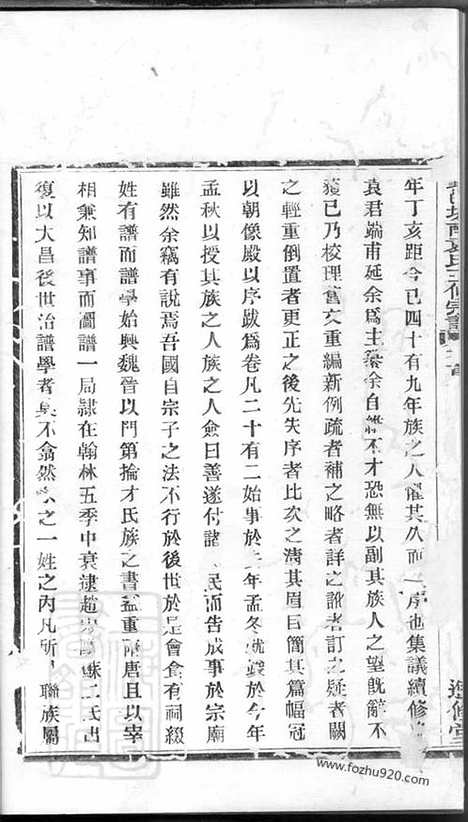 年丁亥距今已四十有九年族之人懼其久而也集議續修
袁君端甫延余爲主纂余自維不才恐無以副其族人之望旣辭不
獲已乃校理舊文重編新例疏者補之略者詳之訛者訂之疑者闕
之輕重倒置者更正之後先失序者比次之淸其眉目簡其篇幅冠
以朝像殿以序跋爲卷凡二十有二始事於年孟冬竣於今年
孟秋以授其族之人族之人僉曰善遂付諸民而告成事於宗廟
雖然余竊有說焉吾國自宗子之法不行於後世於是會食有祠綴
姓有譜而譜學始興魏晉以門第掄才氏族之書益重兩唐且以宰
相兼知譜事而圖譜一局隸在翰林五季中衰逮趙宋蘇二氏出
復以大昌後世治譜學者莫不翕然之一姓之內凡所聯族屬
氏三修宗譜
遺修堂
www.fozhu920.com